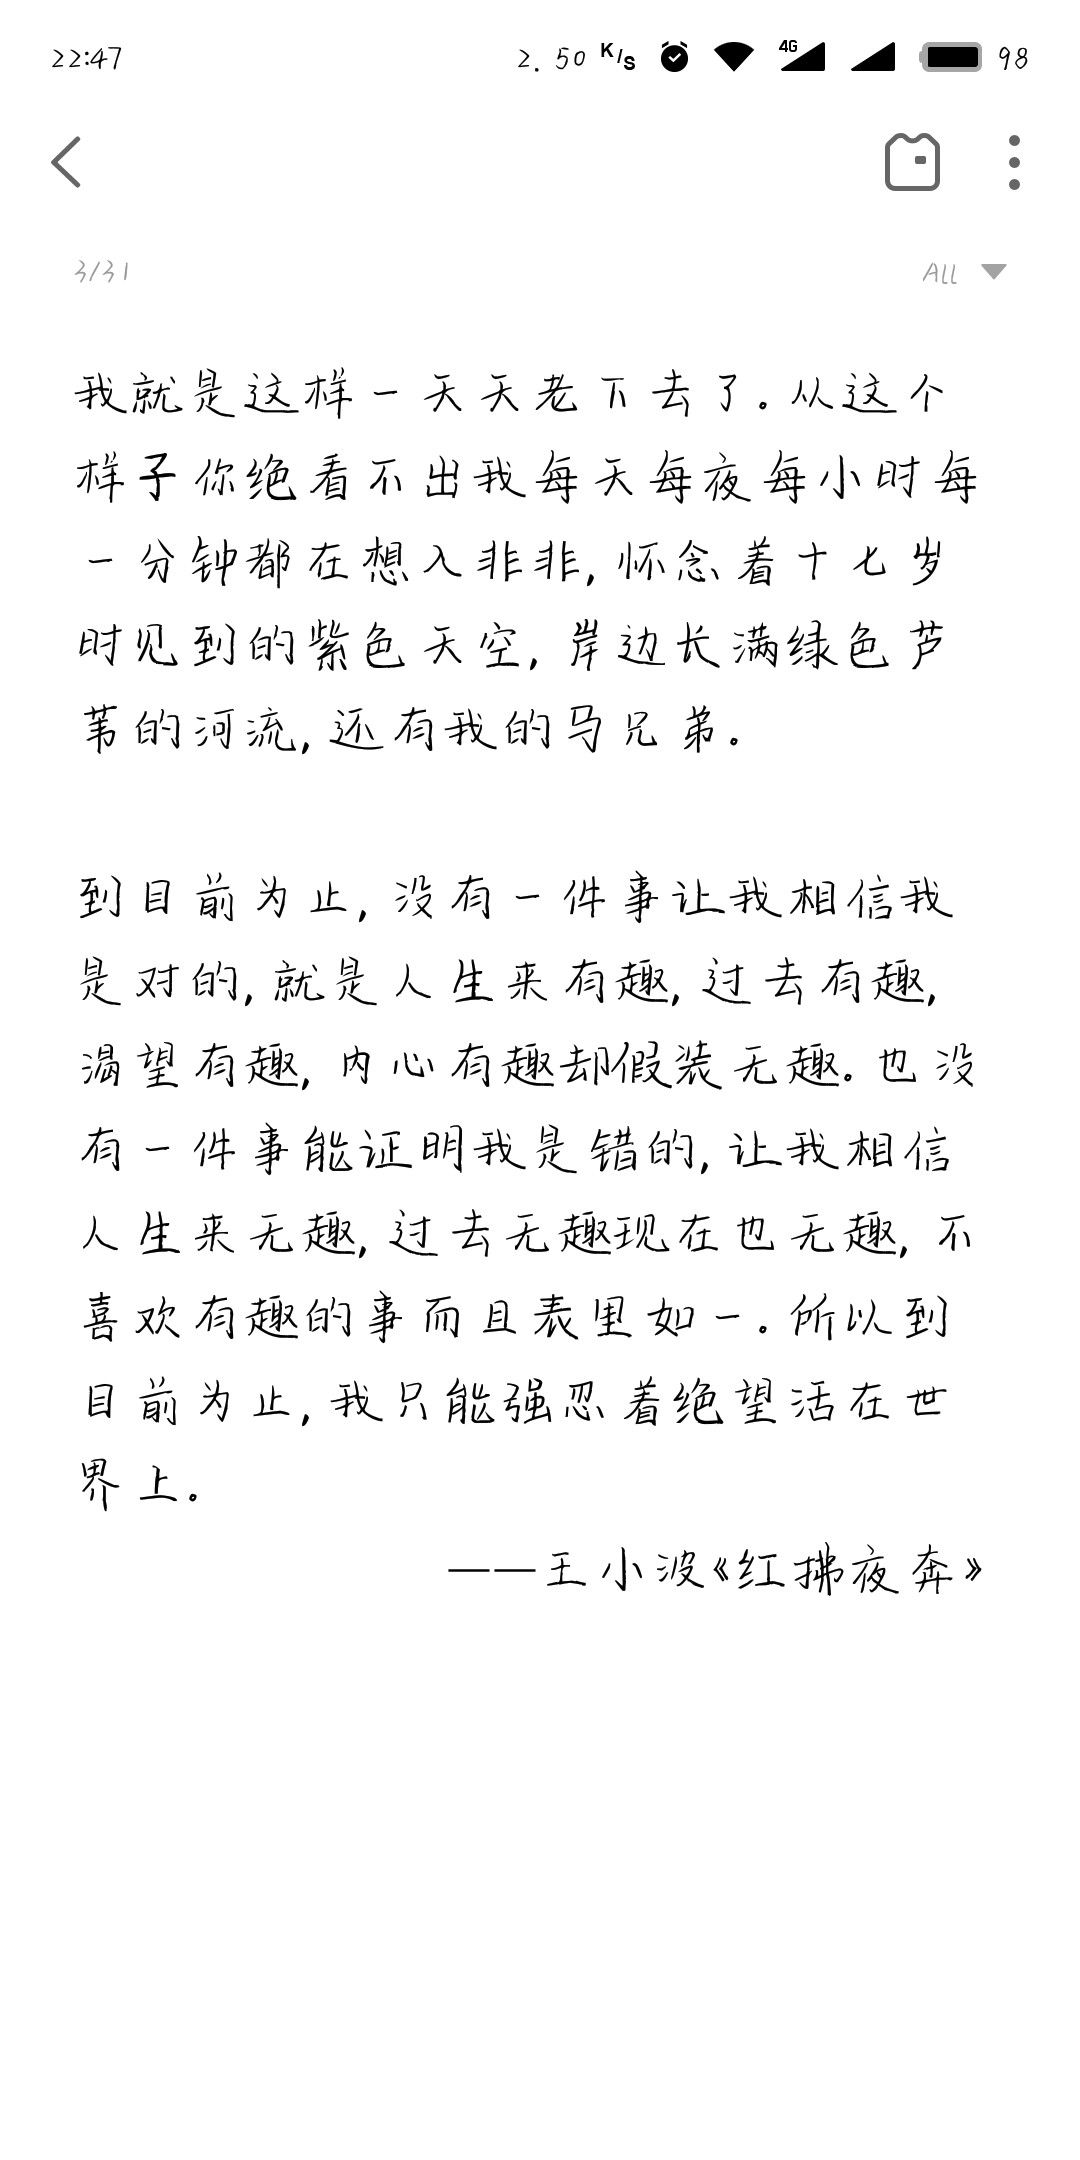 22:47
2.50 K/s 4G 98
3/31 All
我就是这样一天天老下去了.从这个
样子你绝看不出我每天每夜每小时每
一分钟都在想入非非,怀念着十七岁
时见到的紫色天空,岸边长满绿色芦
苇的河流,还有我的马兄弟.
到目前为止,没有一件事让我相信我
是对的,就是人生来有趣,过去有趣,
渴望有趣,内心有趣却假装无趣.也没
有一件事能证明我是错的,让我相信
人生来无趣,过去无趣现在也无趣,不
喜欢有趣的事而且表里如一.所以到
目前为止,我只能强忍着绝望活在世
界上.
——王小波《红拂夜奔》